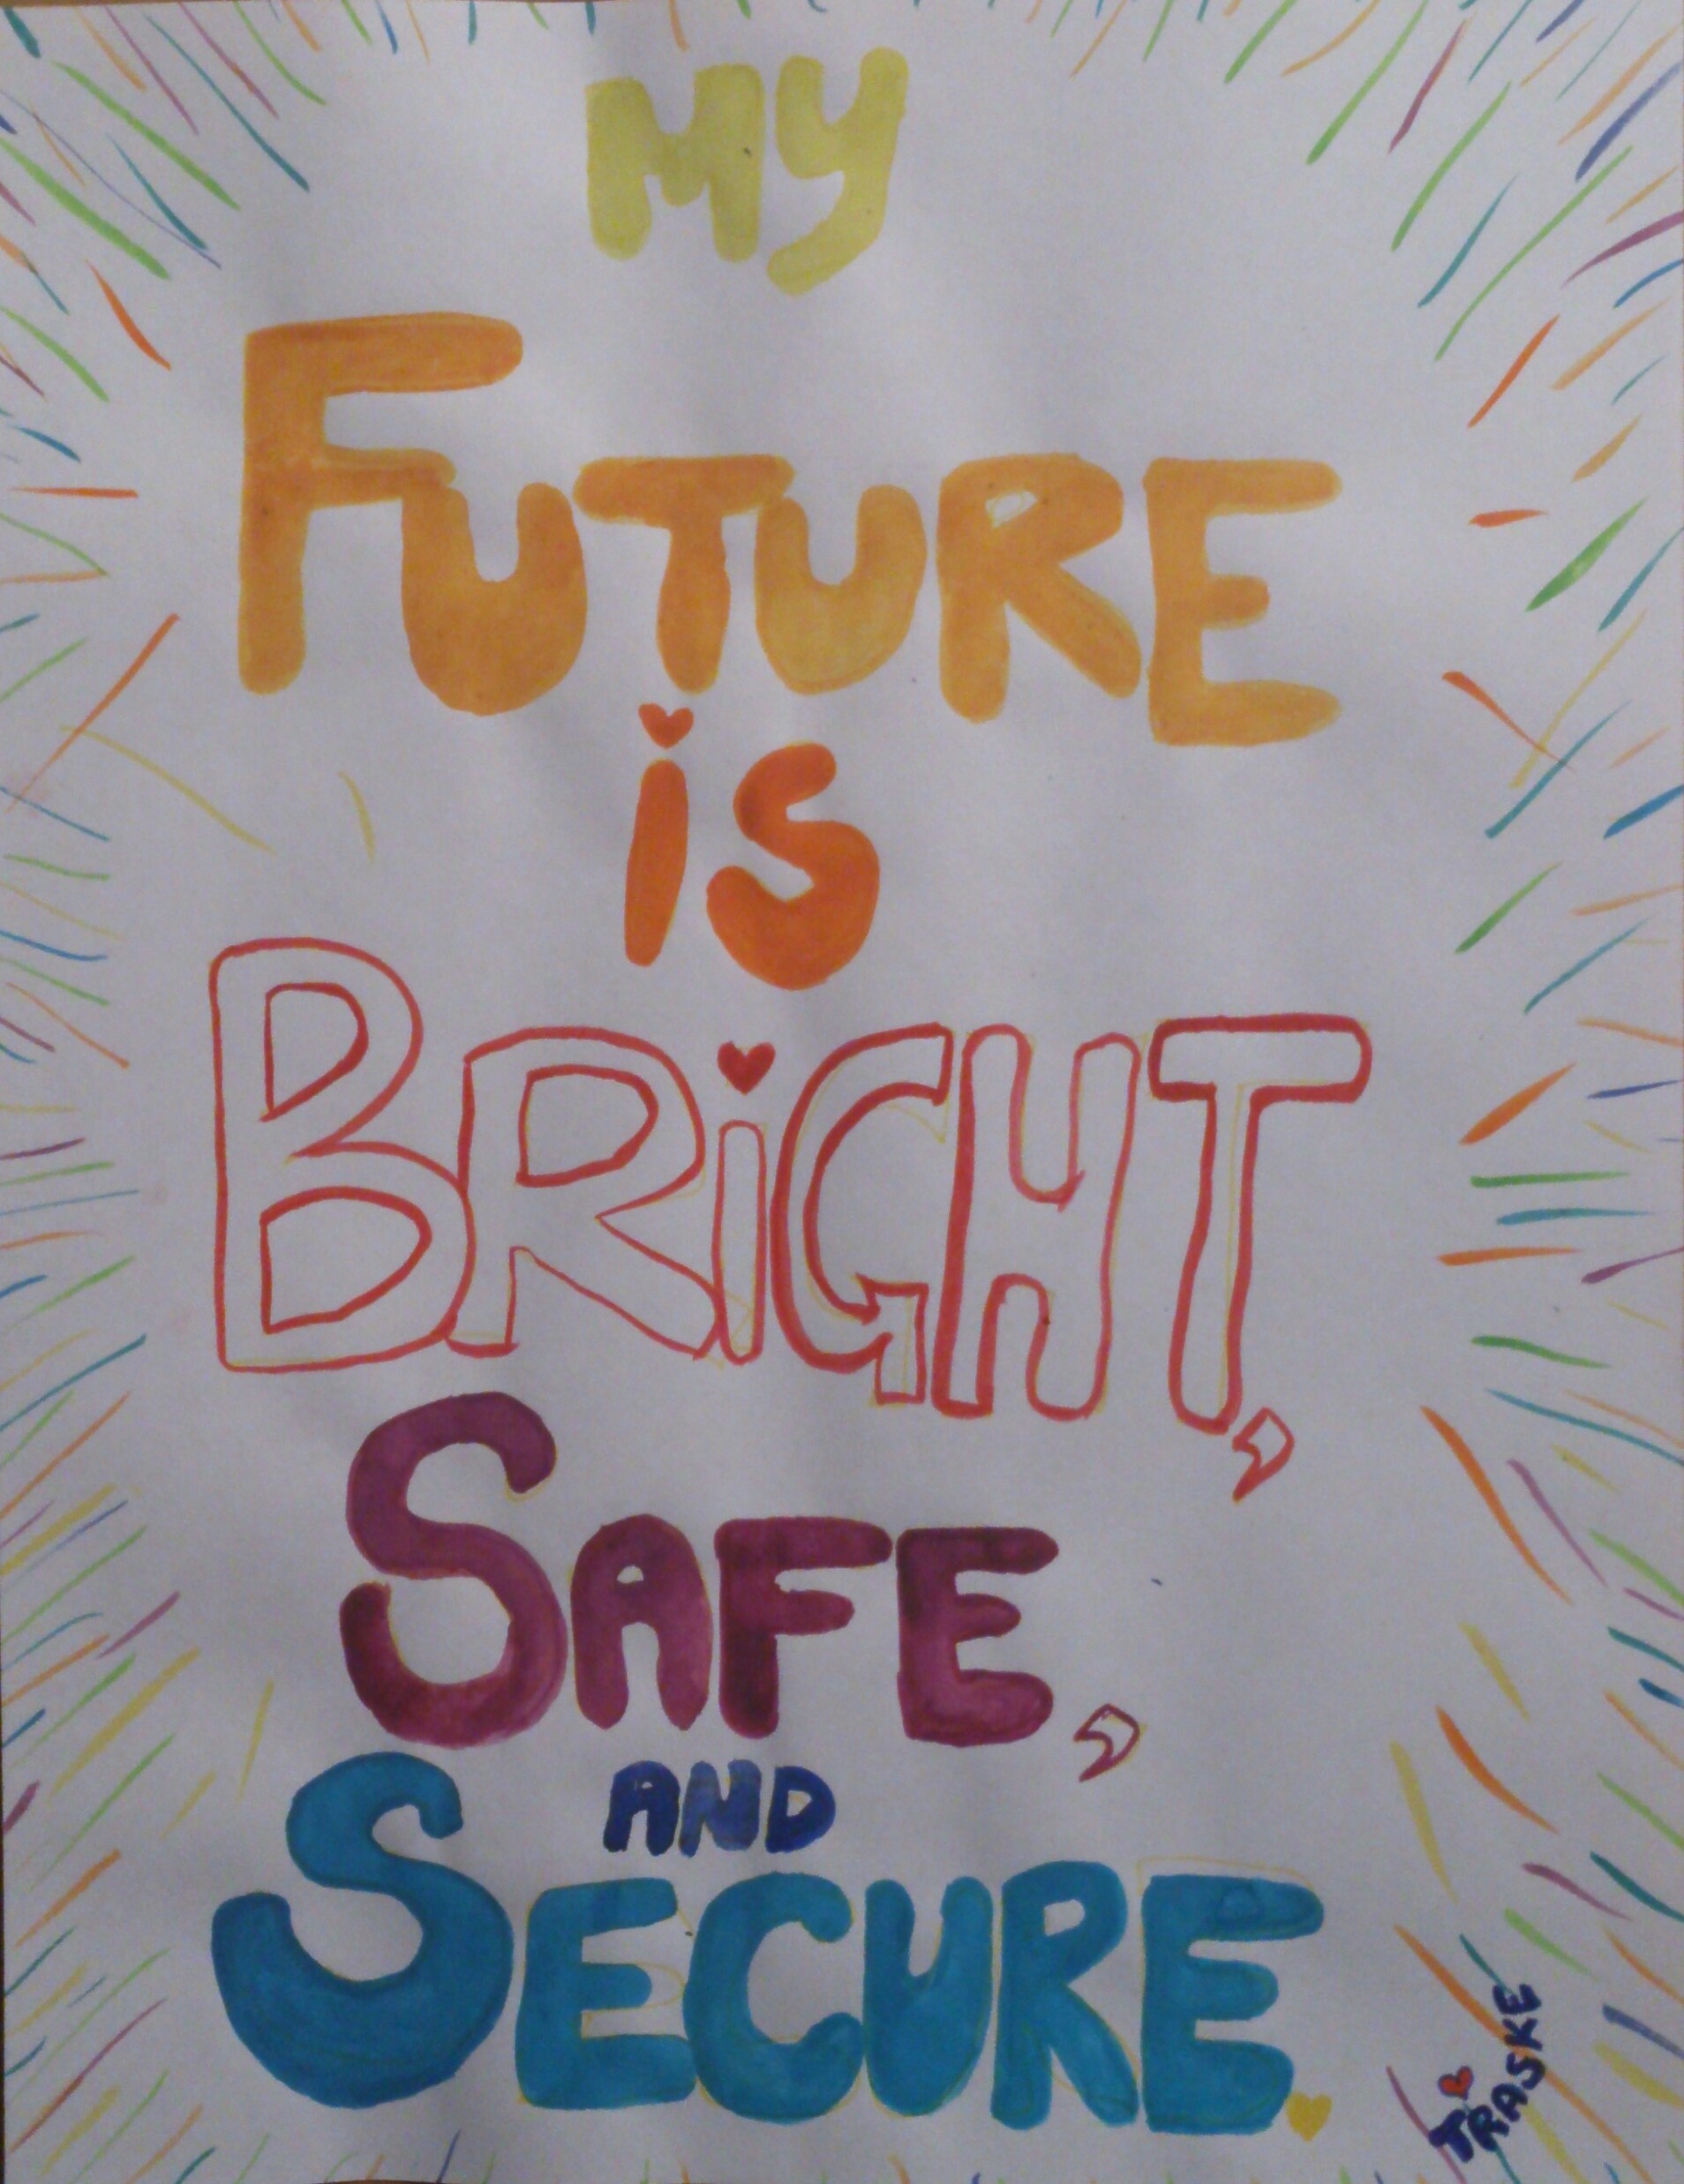 MY
FUTURE
iS
BRiGHT,
SAFE,
AND
SECURE.
TRASKE